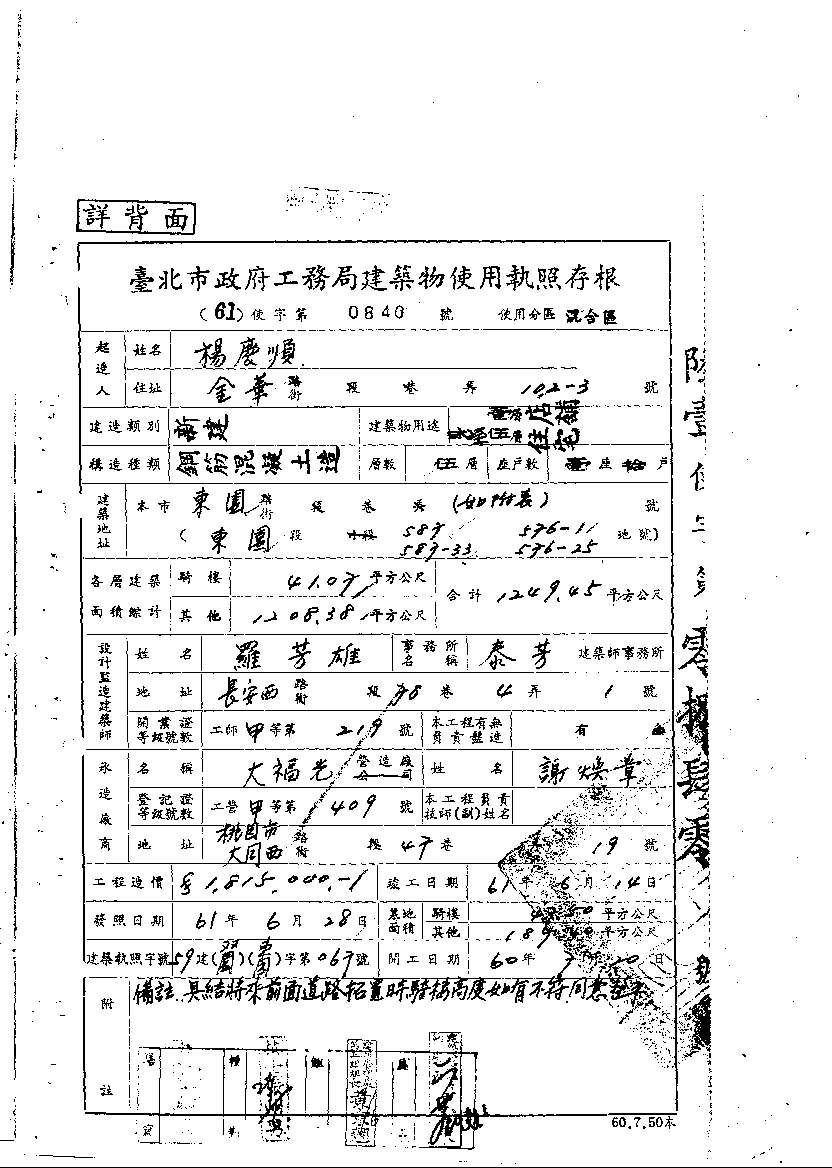 詳背面
臺北市政府工務局建築物使用執照存根
(61)使字第 0840 號 使用分區 混合區
起造人 姓名 楊慶順
住址 金華路街 段 巷 弄 102-3 號
建造類別 新建 建築物用途 店舖 住宅
構造種類 鋼筋混凝土造 層數 伍層 座戶數 壹座拾戶
建築地址 本市 東園路街 段 巷 弄 (如附表) 號
(東園 段 587 576-11 地號)
587-33 576-25
各層建築面積綜計 騎樓 41.07 平方公尺 合計 1249.45 平方公尺
其他 1208.38 平方公尺
設計監造建築師 姓名 羅芳雄 事務所名稱 泰芳 建築師事務所
地址 長安西路街 段 78 巷 4 弄 1 號
開業證等級號數 工師甲等第 219 號 本工程有無負責監造 有
承造廠商 名稱 大福光 營造廠公司 姓名 謝煥章
登記證等級號數 工營甲等第 409 號 本工程負責技師(副)姓名
地址 桃園市大同西路街 段 47 巷 19 號
工程造價 $1,815,040,-1 竣工日期 61年 6月 14日
發照日期 61年 6月 28日 基地面積 騎樓 平方公尺
其他 平方公尺
建築執照字號 59建 字第 067 號 開工日期 60年 日
附註 備註 具結將來前面道路拓寬時騎樓高度如有不符同意
60.7.50本
零捌肆零